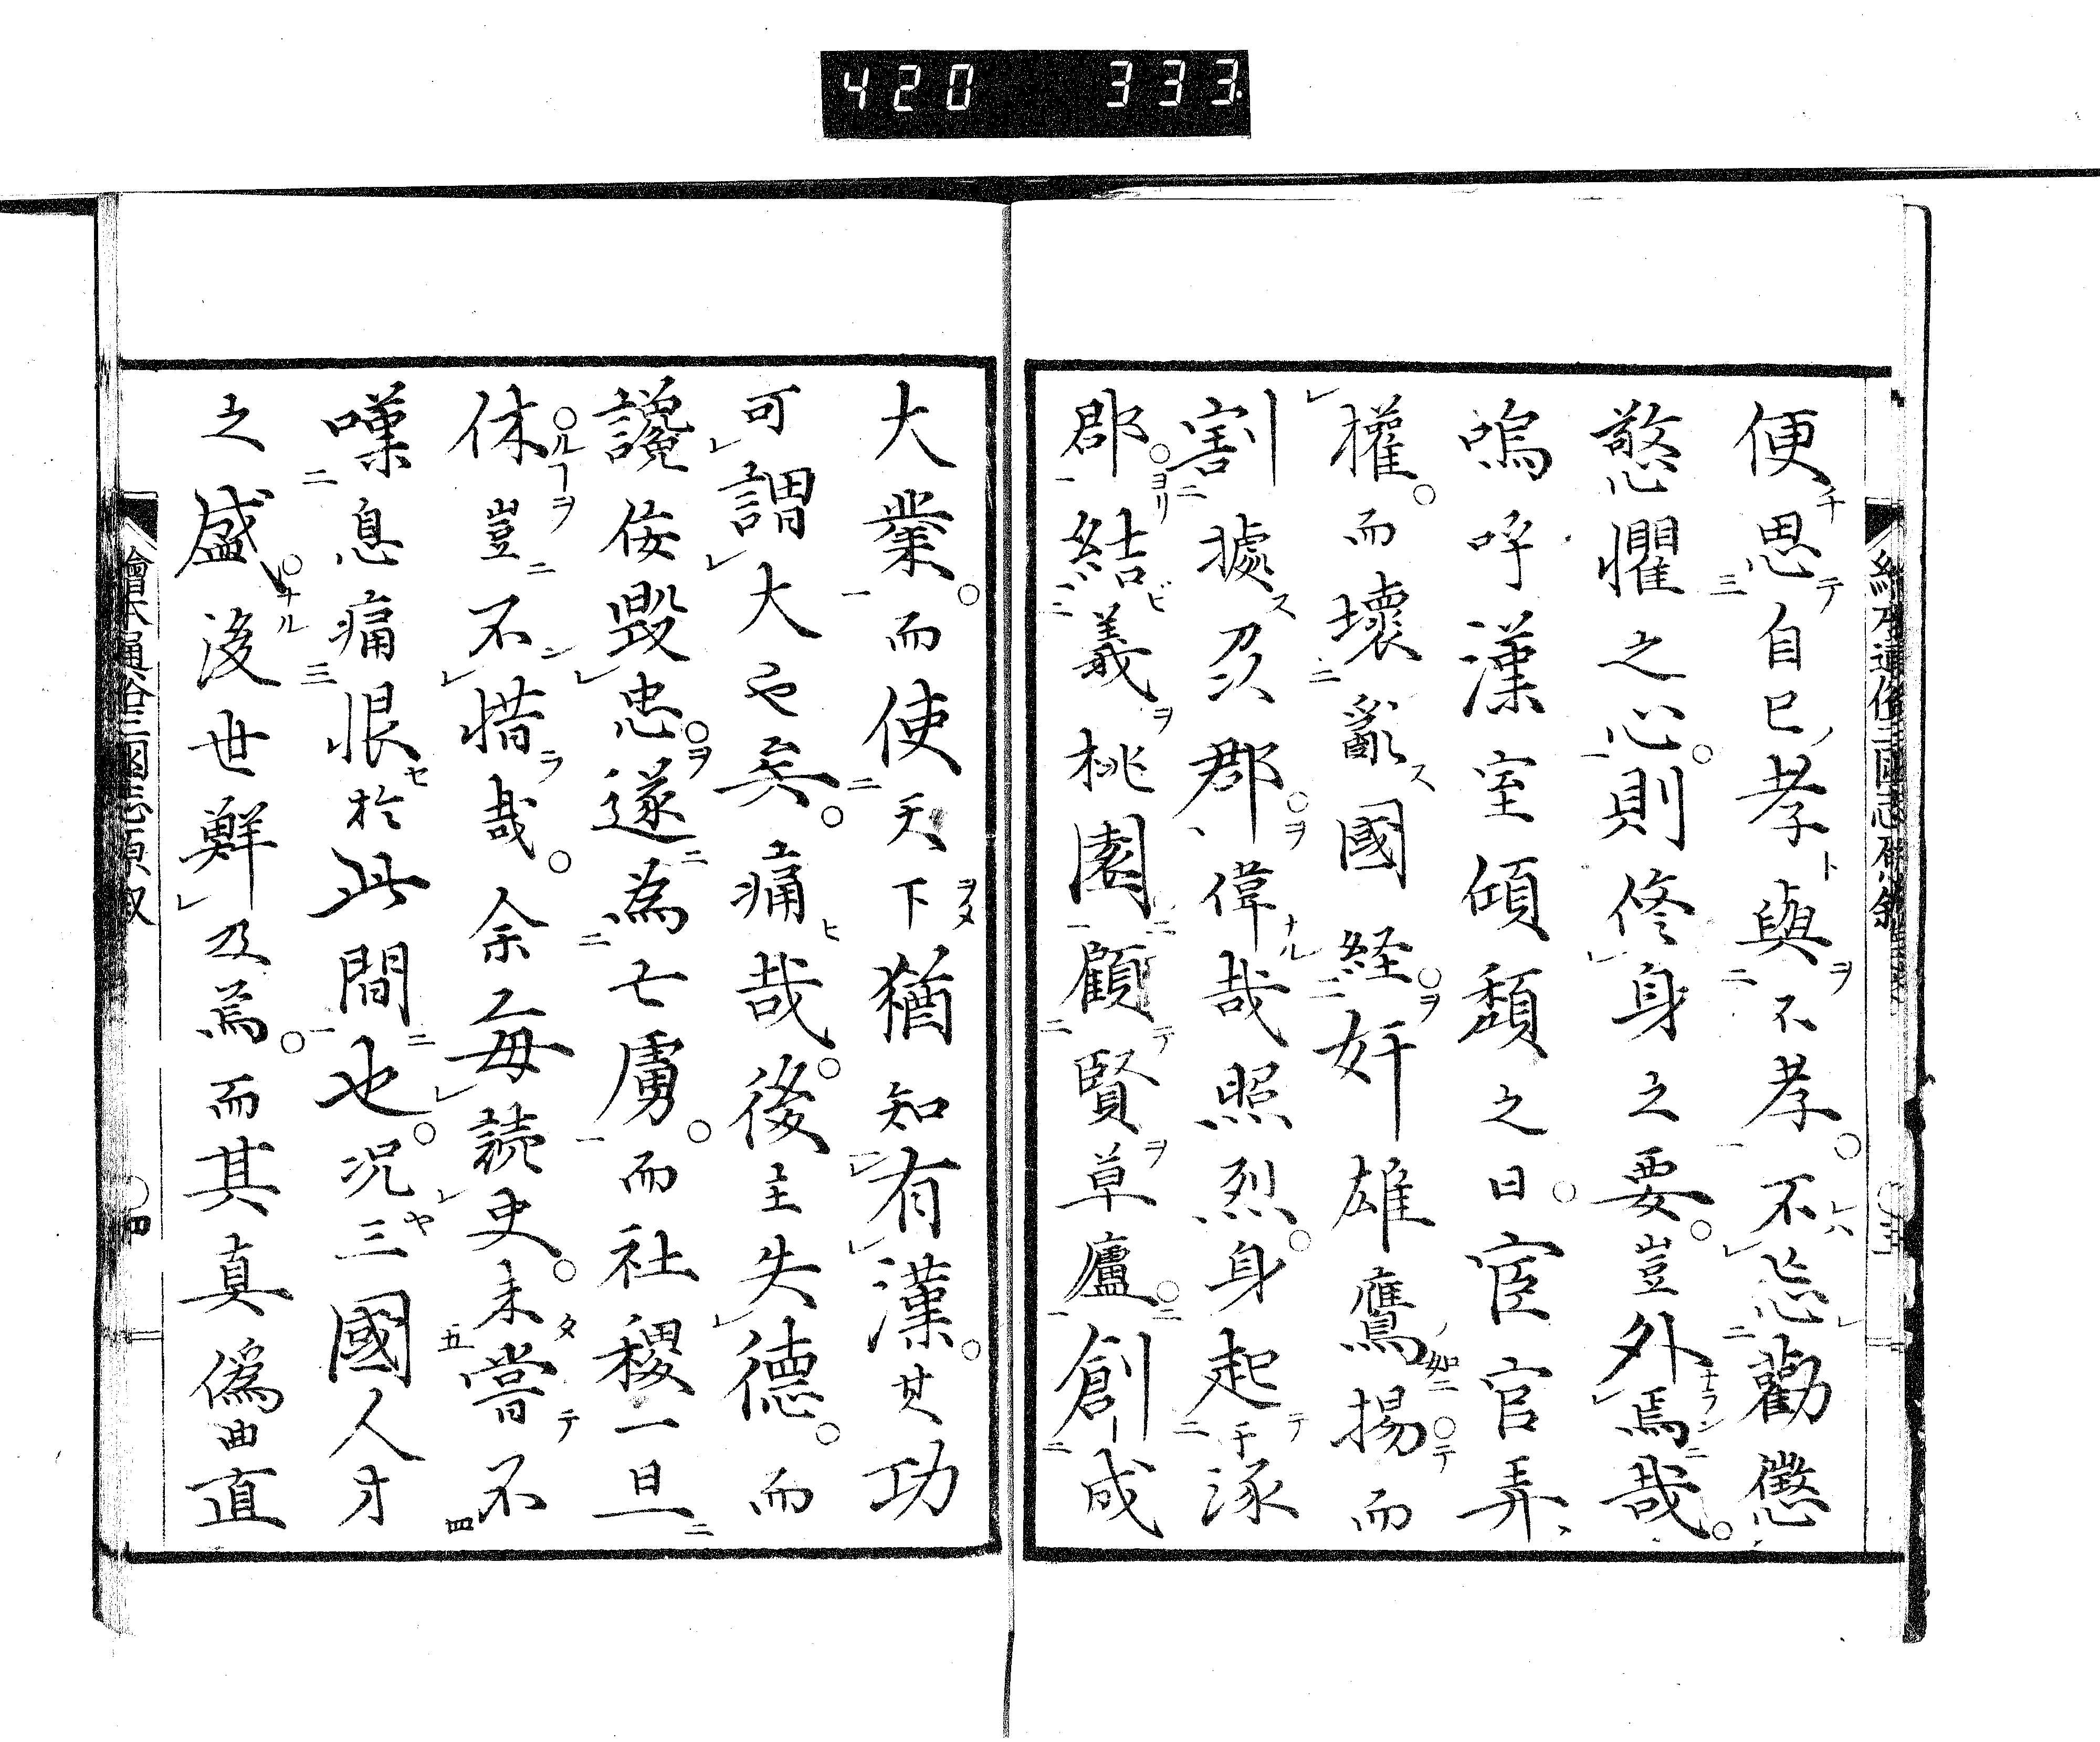 420 333
繪本通俗三國志原叙 〇三
便思自已孝與不孝不忘勸懲
愗懼之心則修身之要豈外焉哉
嗚呼漢室傾頽之日宦官弄
權而壞亂國経奸雄鷹揚而
割據刄郡偉哉照烈身起于涿
郡結義桃園顧賢草廬創成
大業而使天下猶知有漢其功
可謂大也矣痛哉後主失德而
讒佞毀忠遂為亡虜而社稷一旦
休豈不惜哉余每読史未嘗不
嘆息痛恨於此間也况三國人才
之盛後世鮮及焉而其真偽曲直
繪本通俗三國志原叙 〇四